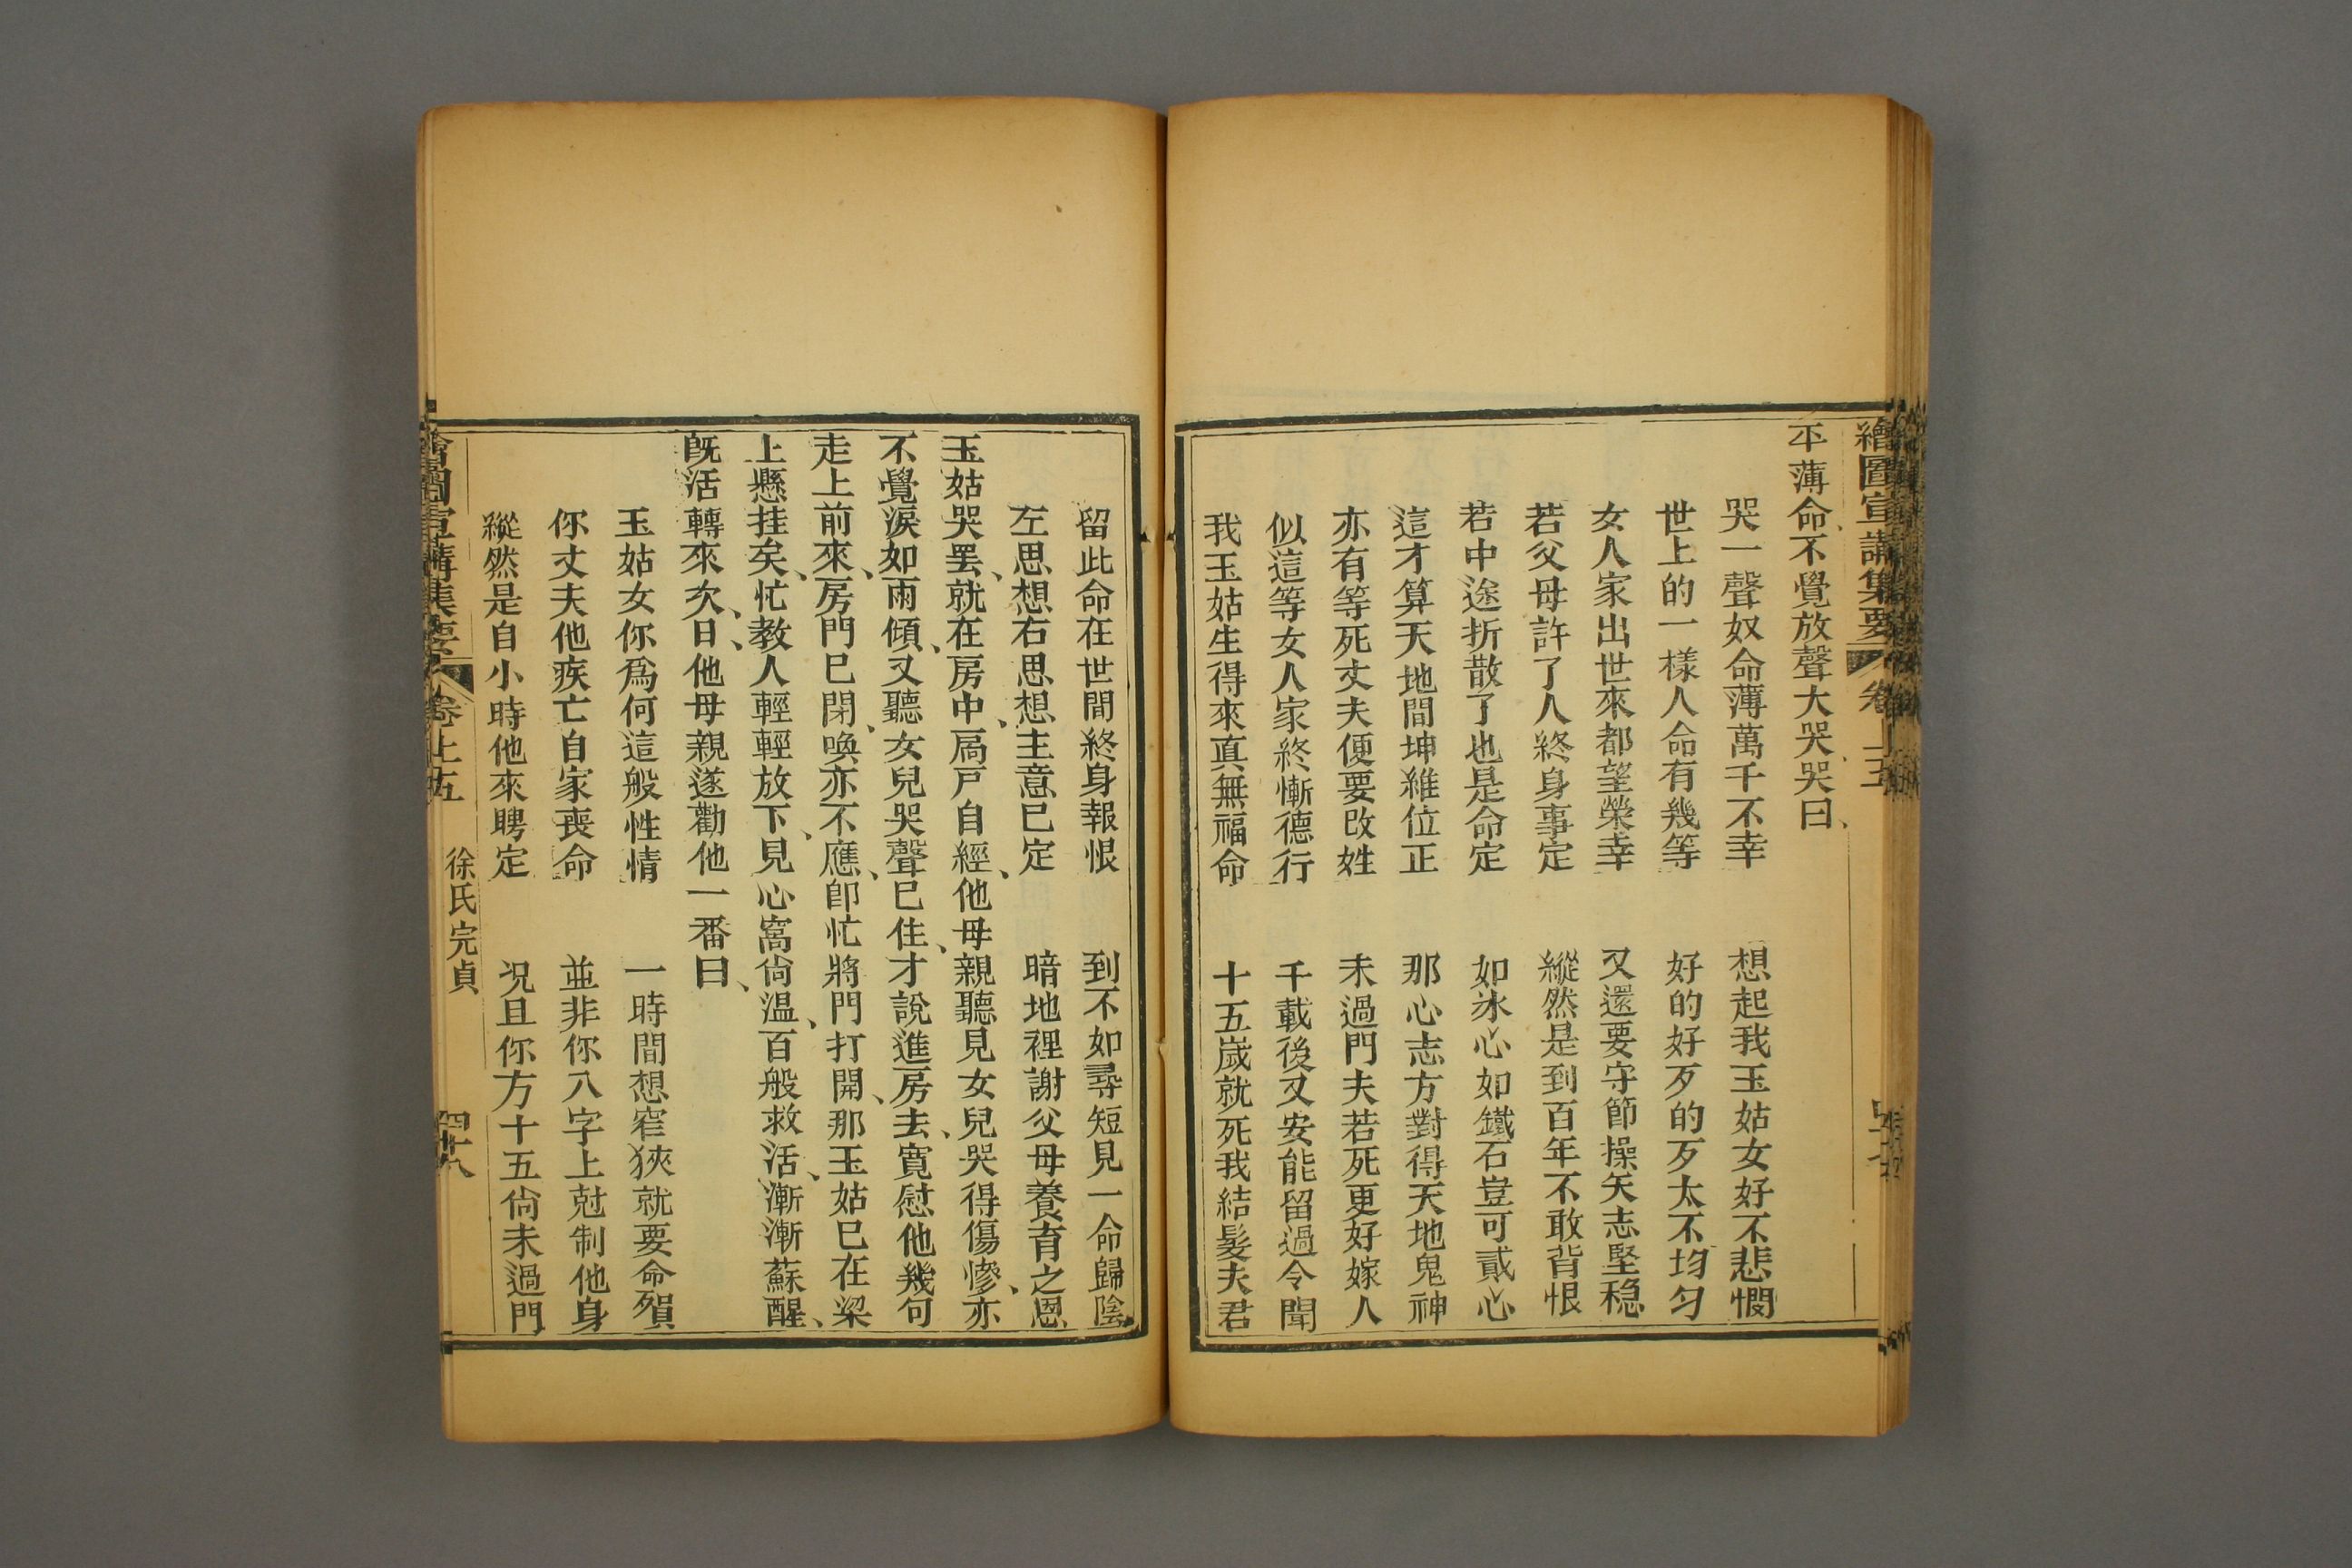 繪圖宣講集要 卷十五
平薄命、不覺放聲大哭、哭曰、
哭一聲奴命薄萬千不幸 想起我玉姑女好不悲憫
世上的一樣人命有幾等 好的好歹的歹太不均勻
女人家出世來都望榮幸 又還要守節操矢志堅稳
若父母許了人終身事定 縱然是到百年不敢背恨
若中途折散了也是命定 如氷心如鐵石豈可貳心
這才算天地間坤維位正 那心志方對得天地鬼神
亦有等死丈夫便要改姓 未過門夫若死更好嫁人
似這等女人家終慚德行 千載後又安能留過令聞
我玉姑生得來真無福命 十五歲就死我結髮夫君
留此命在世間終身報恨 到不如尋短見一命歸陰
左思想右思想主意已定 暗地裡謝父母養育之恩
玉姑哭罷、就在房中、扃戸自經、他母親聽見女兒哭得傷慘、亦
不覺淚如雨傾、又聽女兒哭聲已住、才說進房去、寬慰他幾句
走上前來、房門已閉、喚亦不應、卽忙將門打開、那玉姑已在梁
上懸挂矣、忙教人輕輕放下、見心窩尙温、百般救活、漸漸蘇醒、
旣活轉來、次日、他母親遂勸他一番曰、
玉姑女你爲何這般性情 一時間想窄狹就要命殞
你丈夫他疾亡自家喪命 並非你八字上尅制他身
縱然是自小時他來聘定 况且你方十五尙未過門
繪圖宣講集要 卷十五 徐氏完貞 四十八